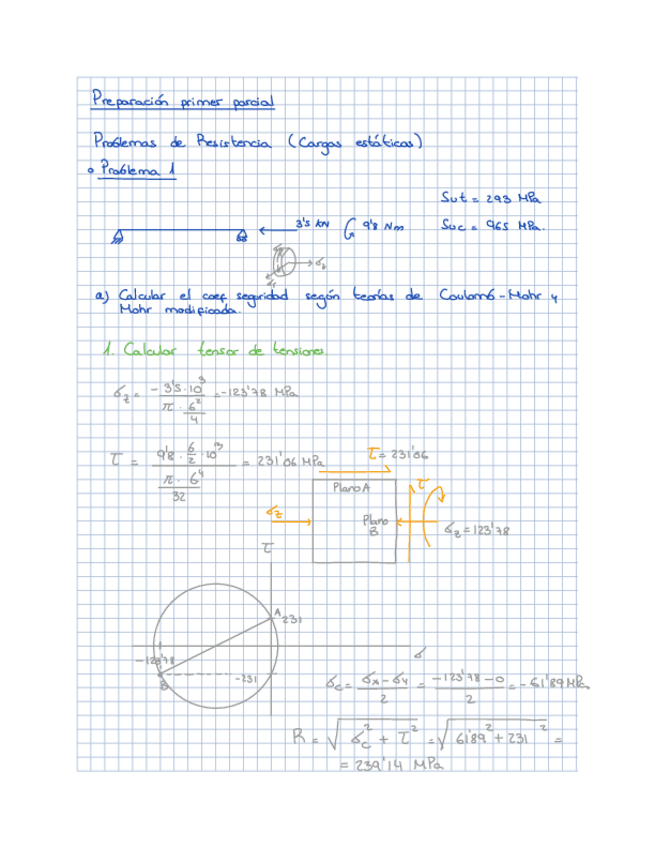 Preparación primer parcial
Problemas de Resistencia (Cargas estáticas)
o Problema 1
Sut = 293 MPa
3's kN 9'8 Nm Suc = 965 MPa.
a) Calcular el coef seguridad según teorías de Coulomb-Mohr y
Mohr modificada.
1. Calcular tensor de tensiones
σz = -3's·10³ / (π · 6²/4) = -123'78 MPa
τ = (9'8 · 6/2 · 10³) / (π · 6⁴/32) = 231'06 MPa
τ = 231'06
Plano A
τ
σz
Plano
B
σz = 123'78
τ
A
231
-123'78
-231
B
σ
σc = (σx - σy)/2 = (-123'78 - 0)/2 = -61'89 MPa
R = √(σc² + τ²) = √(61'89² + 231²) =
= 239'14 MPa